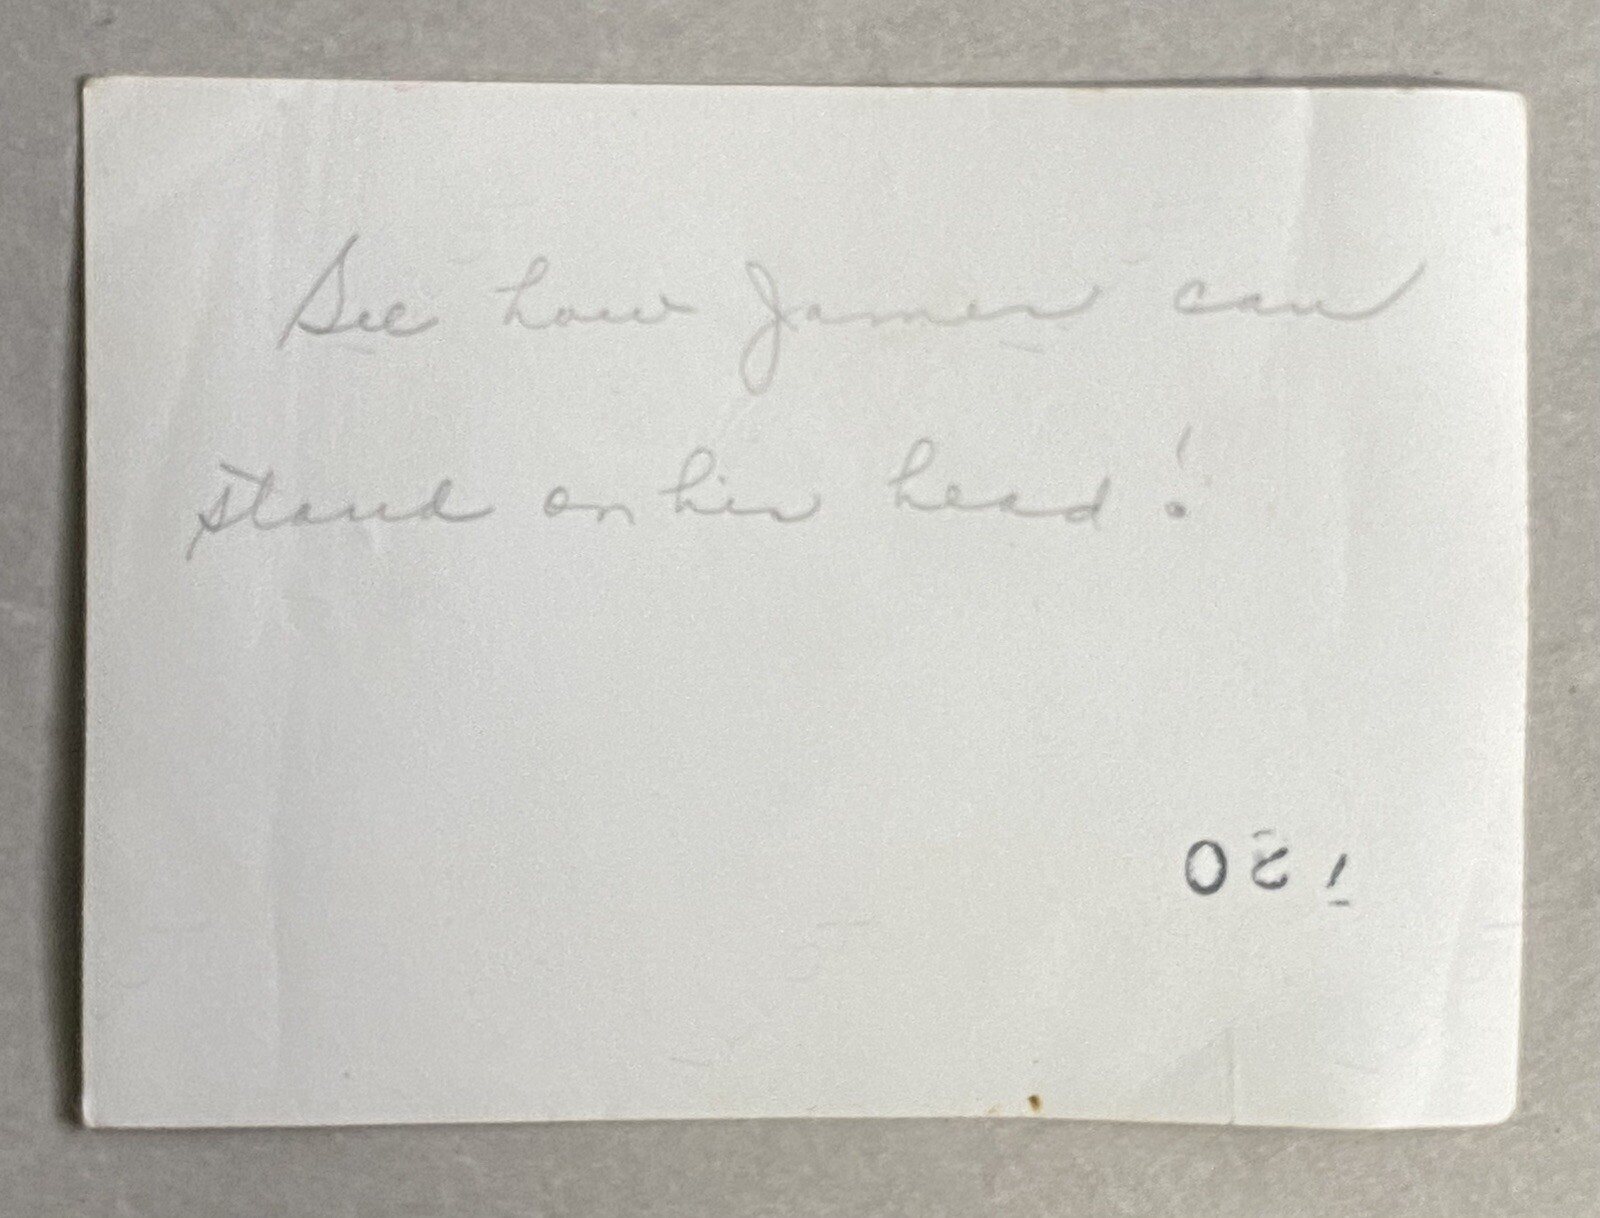 See how James can
stand on his head!